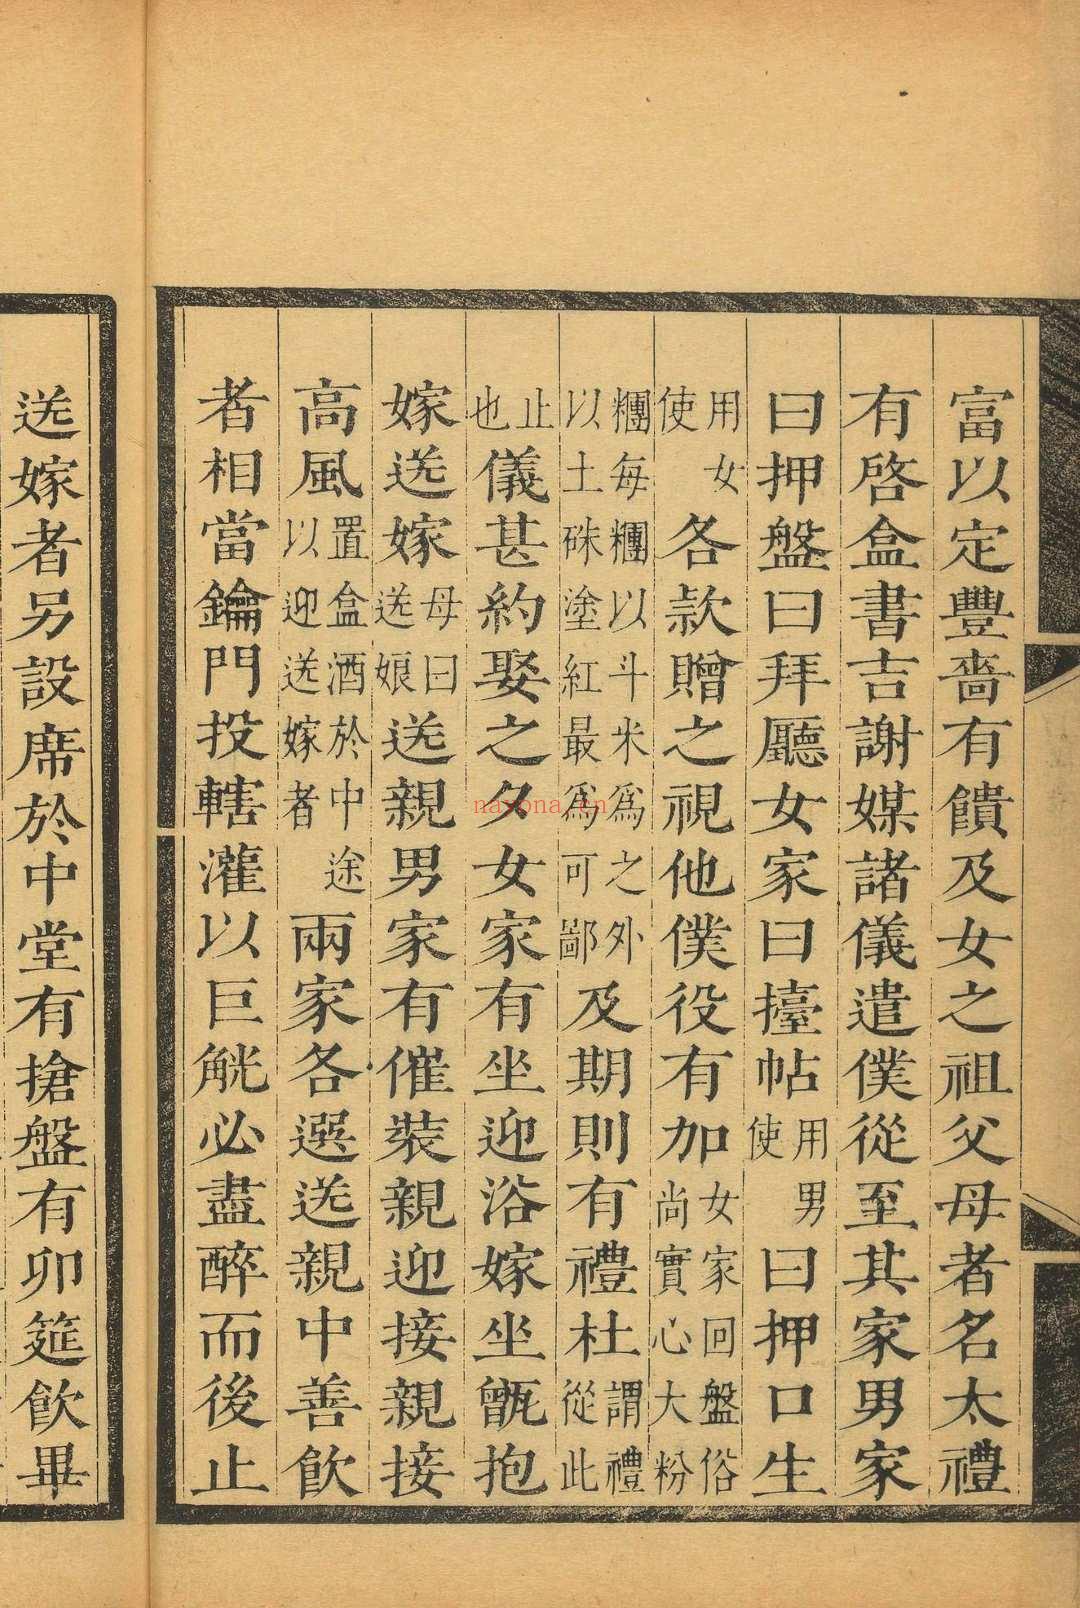 富以定豐嗇有饋及女之祖父母者名太禮
有啓盒書吉謝媒諸儀遣僕從至其家男家
曰押盤曰拜廳女家曰擡帖用男使曰押口生
用女使各款贈之視他僕役有加女家回盤俗尚實心大粉
糰每糰以斗米爲之外以土硃塗紅最爲可鄙及期則有禮杜謂禮從此
止也儀甚約娶之夕女家有坐迎浴嫁坐甑抱
嫁送嫁母曰送娘送親男家有催裝親迎接親接
高風置盒酒於中途以迎送嫁者兩家各選送親中善飲
者相當鑰門投轄灌以巨觥必盡醉而後止
送嫁者另設席於中堂有搶盤有卯筵飲畢
nayona.cn